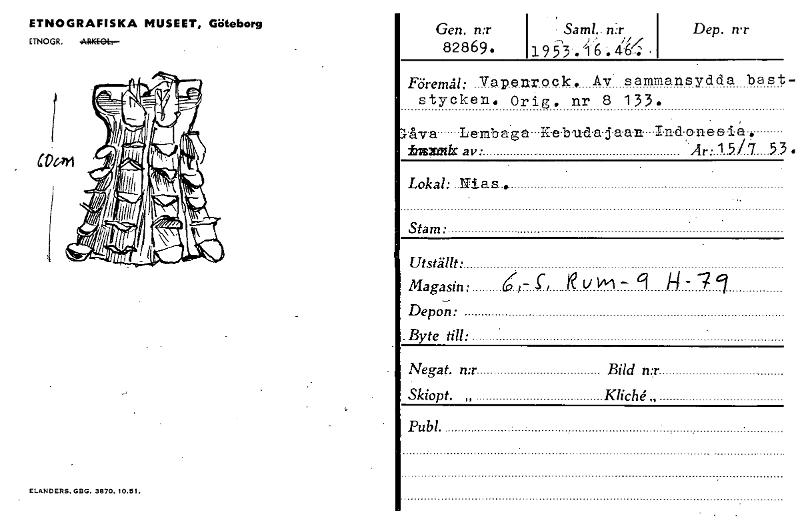 ETNOGRAFISKA MUSEET, Göteborg
ETNOGR. ARKEOL.
60cm
ELANDERS, GBG. 3870. 10.51.
Gen. n:r Saml. n:r Dep. n:r
82869. 1953.16.46.
Föremål: Vapenrock. Av sammansydda bast-
stycken. Orig. nr 8 133.
Gåva Lembaga Kebudajaan Indonesia.
av: År: 15/7 53.
Lokal: Nias.
Stam:
Utställt:
Magasin: 6,-5, Rum-9 H-79
Depon:
Byte till:
Negat. n:r Bild n:r
Skiopt. „ Kliché „
Publ.